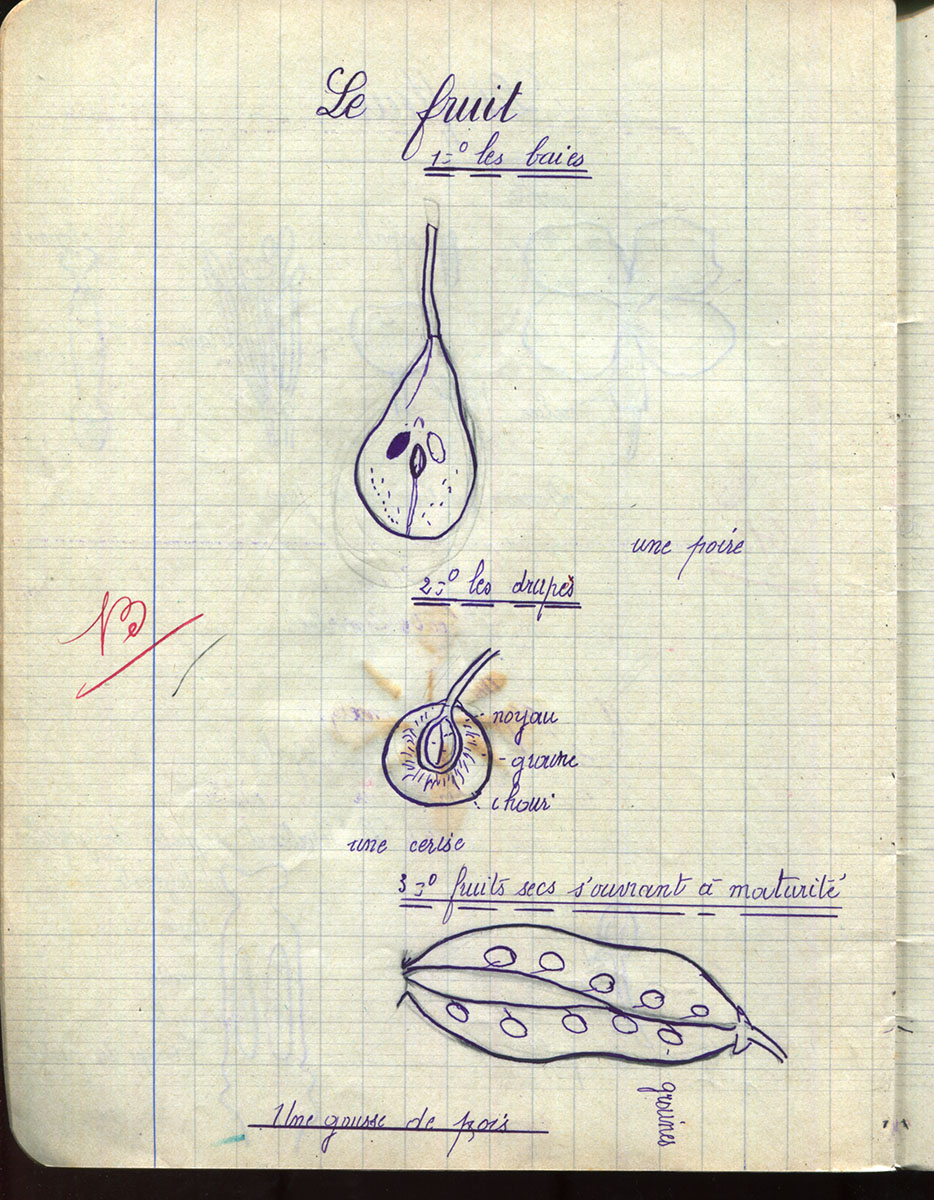 Le fruit
1=° les baies
une poire
2=° les drupes
noyau
graine
chair
une cerise
3=° fruits secs s'ouvrant à maturité
graines
Une gousse de pois